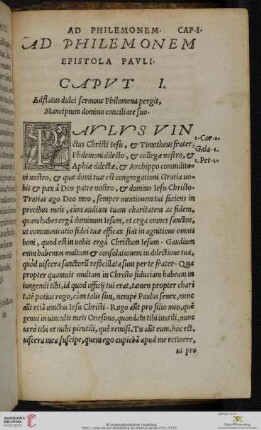 AD PHILEMONEM. CAP. I.
AD PHILEMONEM
EPISTOLA PAVLI.
CAPVT I.
Adflatus dulci sermone Philemona pergit,
Mancipium domino conciliare suo.
PAVLVS VIN
ctus Christi Iesu, & Timotheus frater,
Philemoni dilecto, & collegæ nostro, &
Aphiæ dilectæ, & Archippo commilito-
ni nostro, & quæ domi tuæ est congregationi Gratia uo-
bis & pax à Deo patre nostro, & domino Iesu Christo
Gratias ago Deo meo, semper mentionem tui faciens in
precibus meis, cum audiam tuam charitatem ac fidem,
quam habes erga dominum Iesum, et erga omnes sanctos,
ut communicatio fidei tuæ efficax sit in agnitione omnis
boni, quod est in nobis erga Christum Iesum. Gaudium
enim habemus multum & consolationem in dilectione tua,
quòd uiscera sanctorū refocillata sunt per te frater. Qua
propter quamuis multam in Christo fiduciam habeam in
iungendi tibi, id quod officij tui erat, tamen propter chari
tatē potius rogo, cùm talis sim, nempe Paulus senex, nunc
aūt etiā uinctus Iesu Christi. Rogo aūt pro filio meo, quē
genui in uinculis meis Onesimo, quondā tibi inutili, nunc
uerò tibi et mihi perutili, quē remisi. Tu aūt eum, hoc est,
uiscera mea, suscipe, quem ego cupiebā apud me retinere,
ut pro
1. Cor. 1.
Gala. 1.
1. Pet. 1.